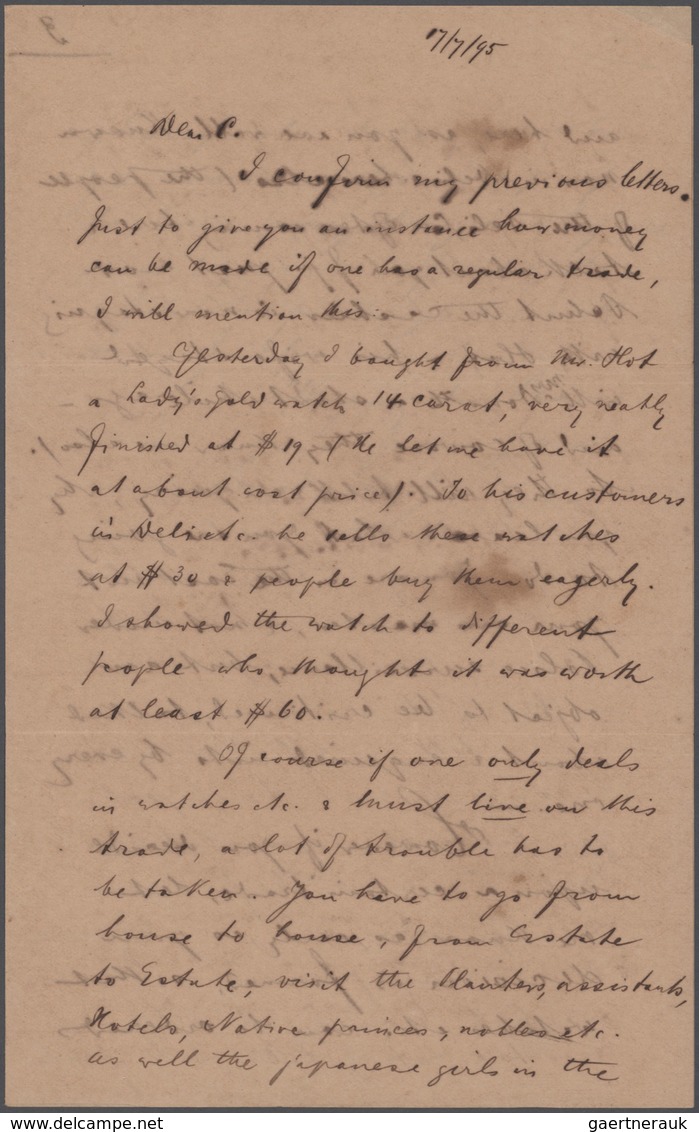 17/7/95
Dear C.
I confirm my previous letters.
Just to give you an instance how money
can be made if one has a regular trade,
I will mention this:
Yesterday I bought from Mr. Hot
a Lady's gold watch 14 carat, very neatly
finished at $19 (He let me have it
at about cost price). To his customers
in Deli etc. he sells these watches
at $30 & people buy them eagerly.
I showed the watch to different
people who thought it was worth
at least $60.
Of course if one only deals
in watches etc. & must live on this
trade, a lot of trouble has to
be taken. You have to go from
house to house, from Estate
to Estate, visit the Planters, assistants,
Hotels, Native princes, nobles etc.
as well the japanese girls in the
gaertnerauk